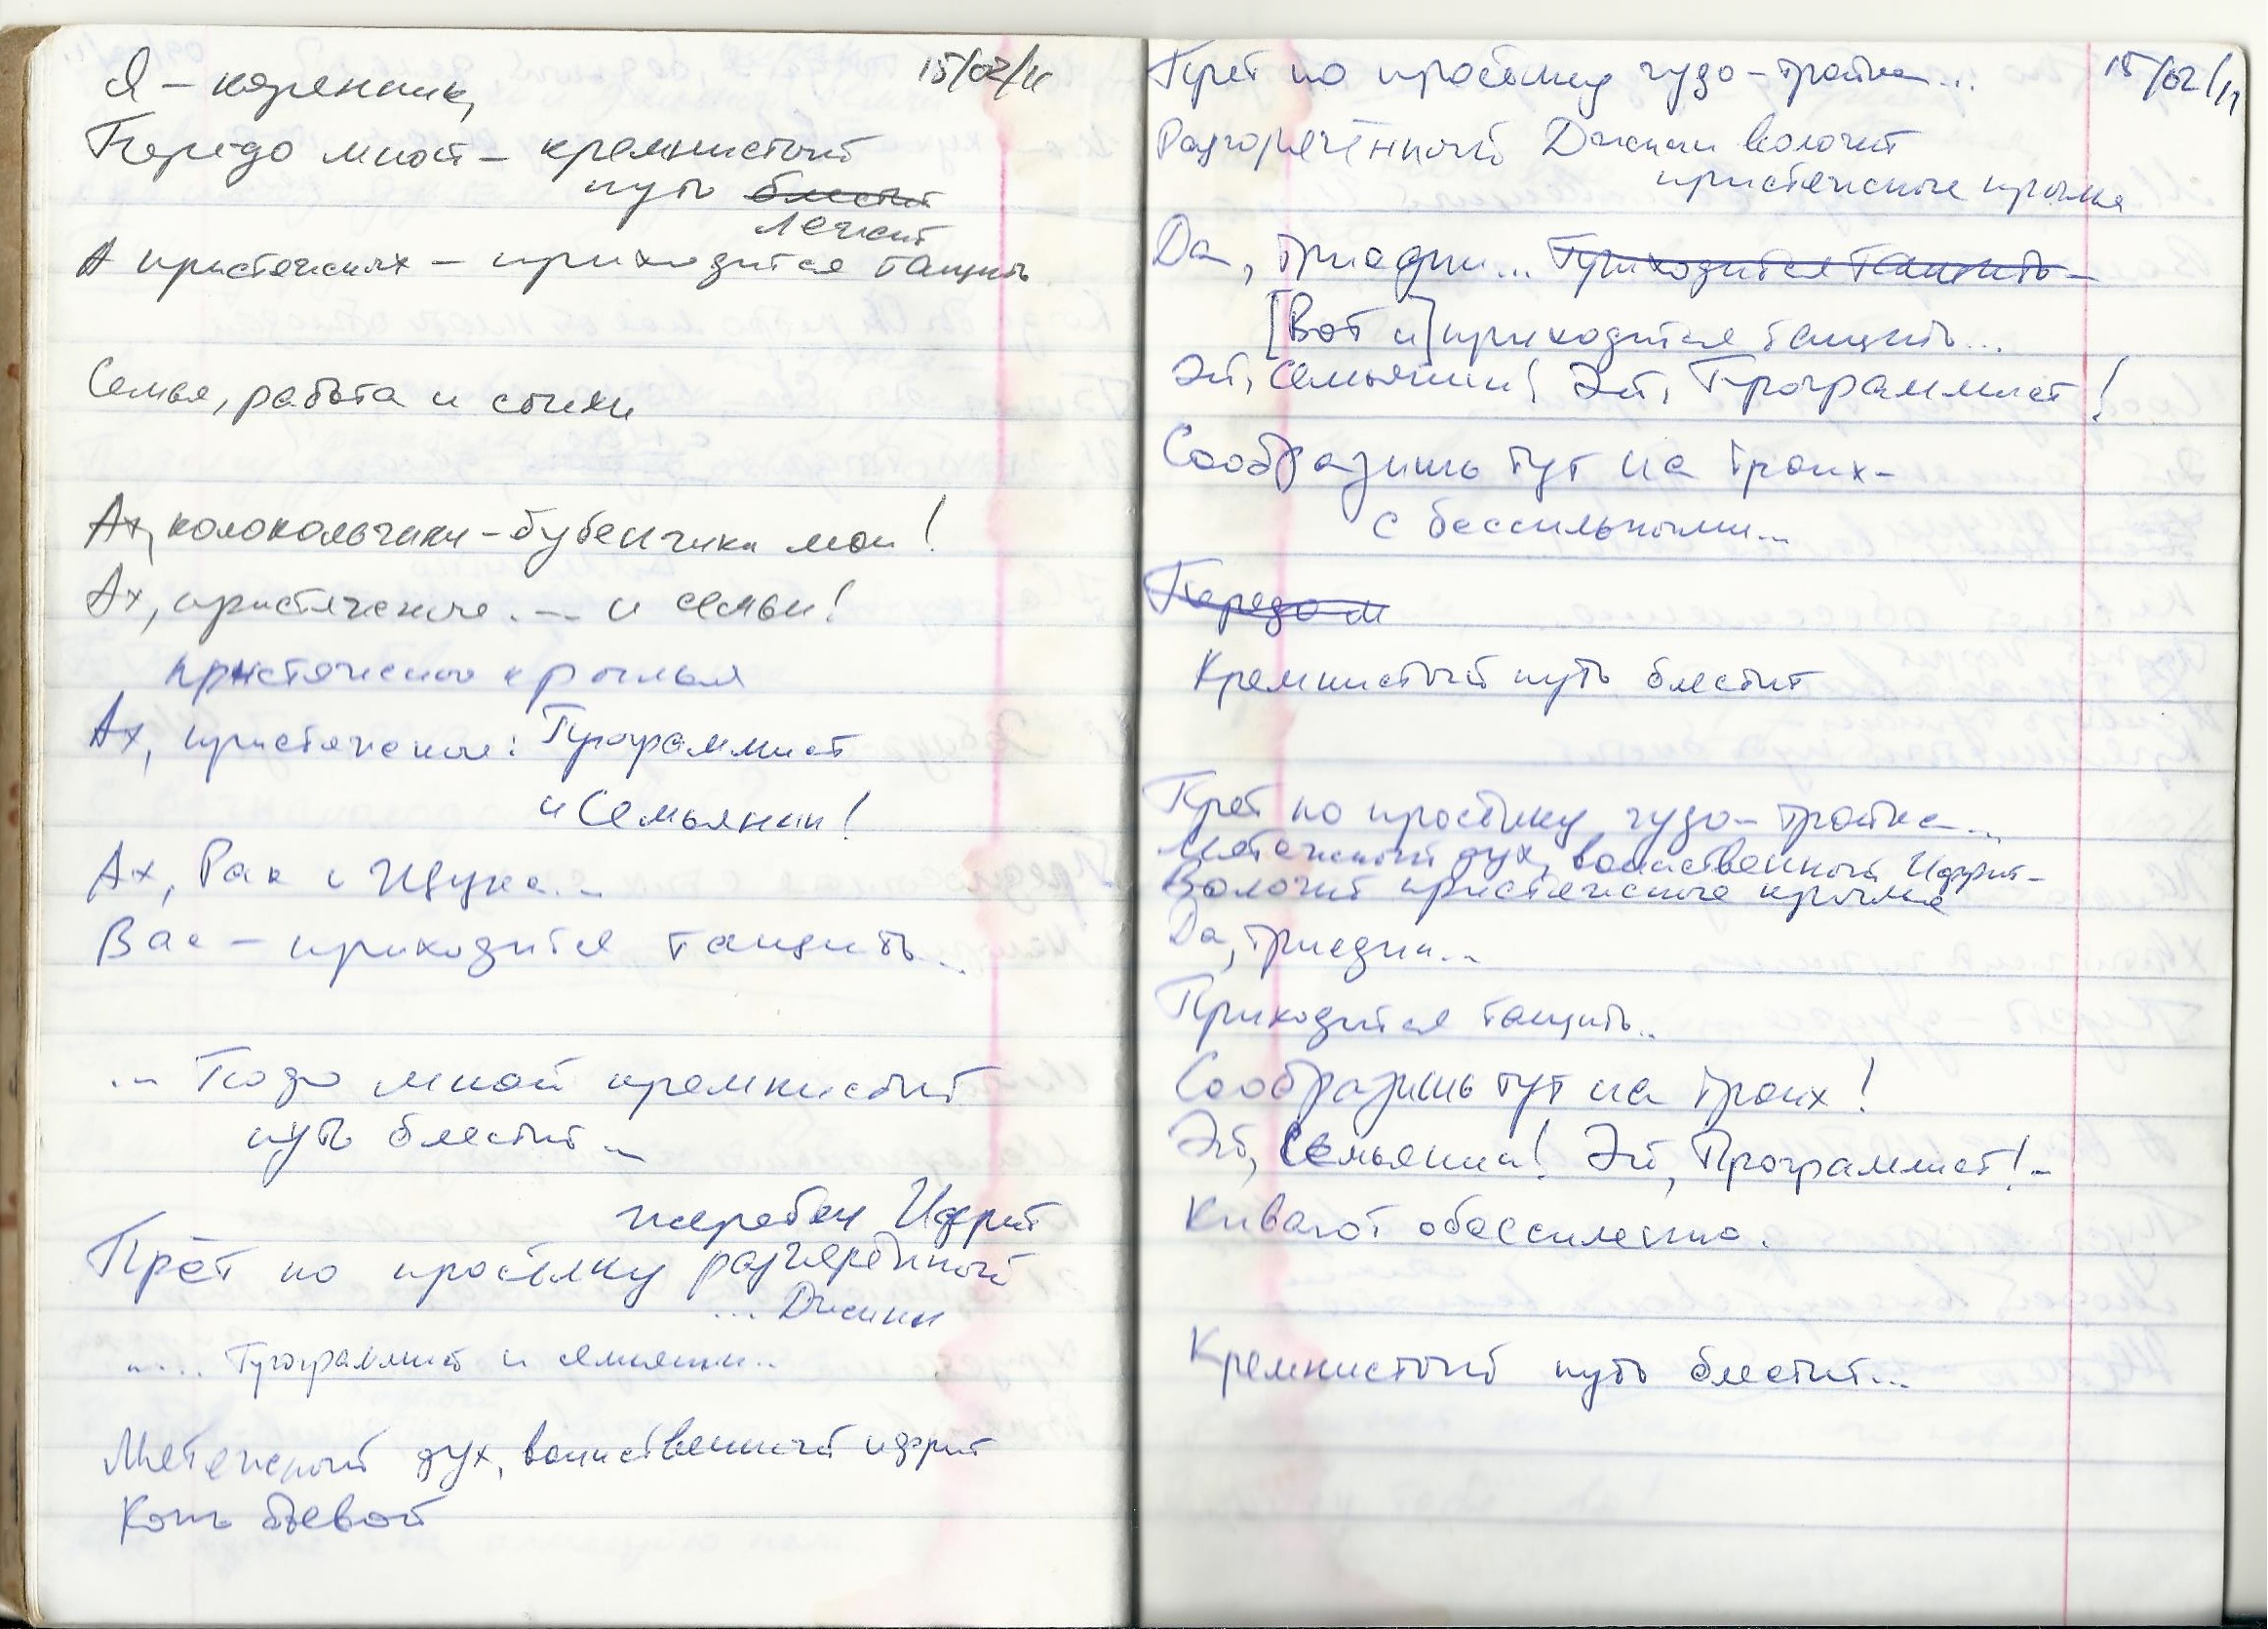 15/02/11
Я – коренник,
Передо мной – кремнистый
путь блестит
лежит
А пристяжных – приходится тащить
Семья, работа и стихи
Ах, колокольчики-бубенчики мои!
Ах, пристяжные... и семьи!
пристяжные крылья
Ах, пристяжные: Программист
и Семьянин!
Ах, Рак и Щука...
Вас – приходится тащить...
... Подо мной кремнистый
путь блестит...
жеребец Ифрит
Прёт по просёлку разгорячённый
... Джинн
.... Программист и
Мятежный дух, воинственный ифрит
Конь боевой
15/02/11
Прёт по просёлку чудо-тройка...
Разгорячённый Джинн волочит
пристяжные крылья
Да, триедин... Приходится тащить –
[Вот и] приходится тащить...
Эй, Семьянин! Эй, Программист!
Сообразишь тут на троих –
с бессильными...
Передо м
Кремнистый путь блестит
Прёт по просёлку чудо-тройка...
Мятежный дух, воинственный Ифрит –
Волочит пристяжные крылья
Да, триедин...
Приходится тащить...
Сообразишь тут на троих!
Эй, Семьянин! Эй, Программист! –
Кивают обессиленно.
Кремнистый путь блестит...